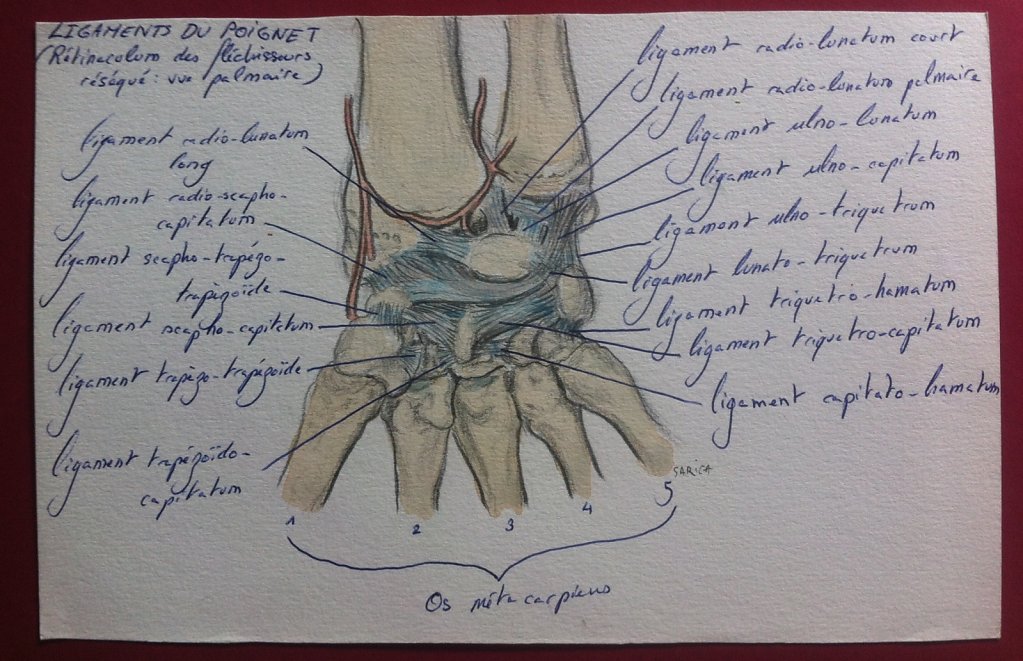 LIGAMENTS DU POIGNET
(Rétinaculum des fléchisseurs
réséqué : vue palmaire)
ligament radio-lunatum
long
ligament radio-scapho-
capitatum
ligament scapho-trapézo-
trapézoïde
ligament scapho-capitatum
ligament trapézo-trapézoïde
ligament trapézoïdo-
capitatum
ligament radio-lunatum court
ligament radio-lunatum palmaire
ligament ulno-lunatum
ligament ulno-capitatum
ligament ulno-triquetrum
ligament lunato-triquetrum
ligament triquetro-hamatum
ligament triquetro-capitatum
ligament capitato-hamatum
SARICA
1 2 3 4 5
Os métacarpiens